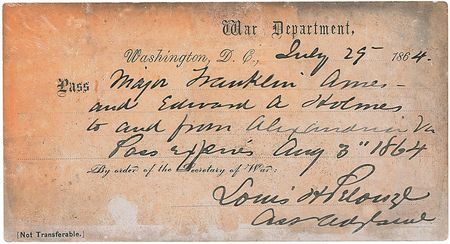 War Department,
Washington, D. C., July 29 1864.
Pass Major Franklin Ames
and Edward A Holmes
to and from Alexandria Va
Pass expires Aug 3" 1864
By order of the Secretary of War:
Louis H Pelouze
Asst Adjt Genl
[Not Transferable.]